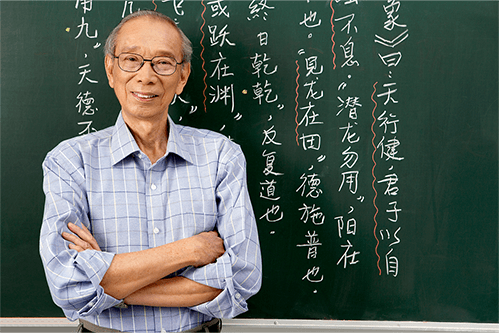 象》曰：天行健，君子以自
不息。“潜龙勿用”，阳在
也。“见龙在田”，德施普也。
终日乾乾”，反复道也。
或跃在渊”，
飞
用九”，天德不